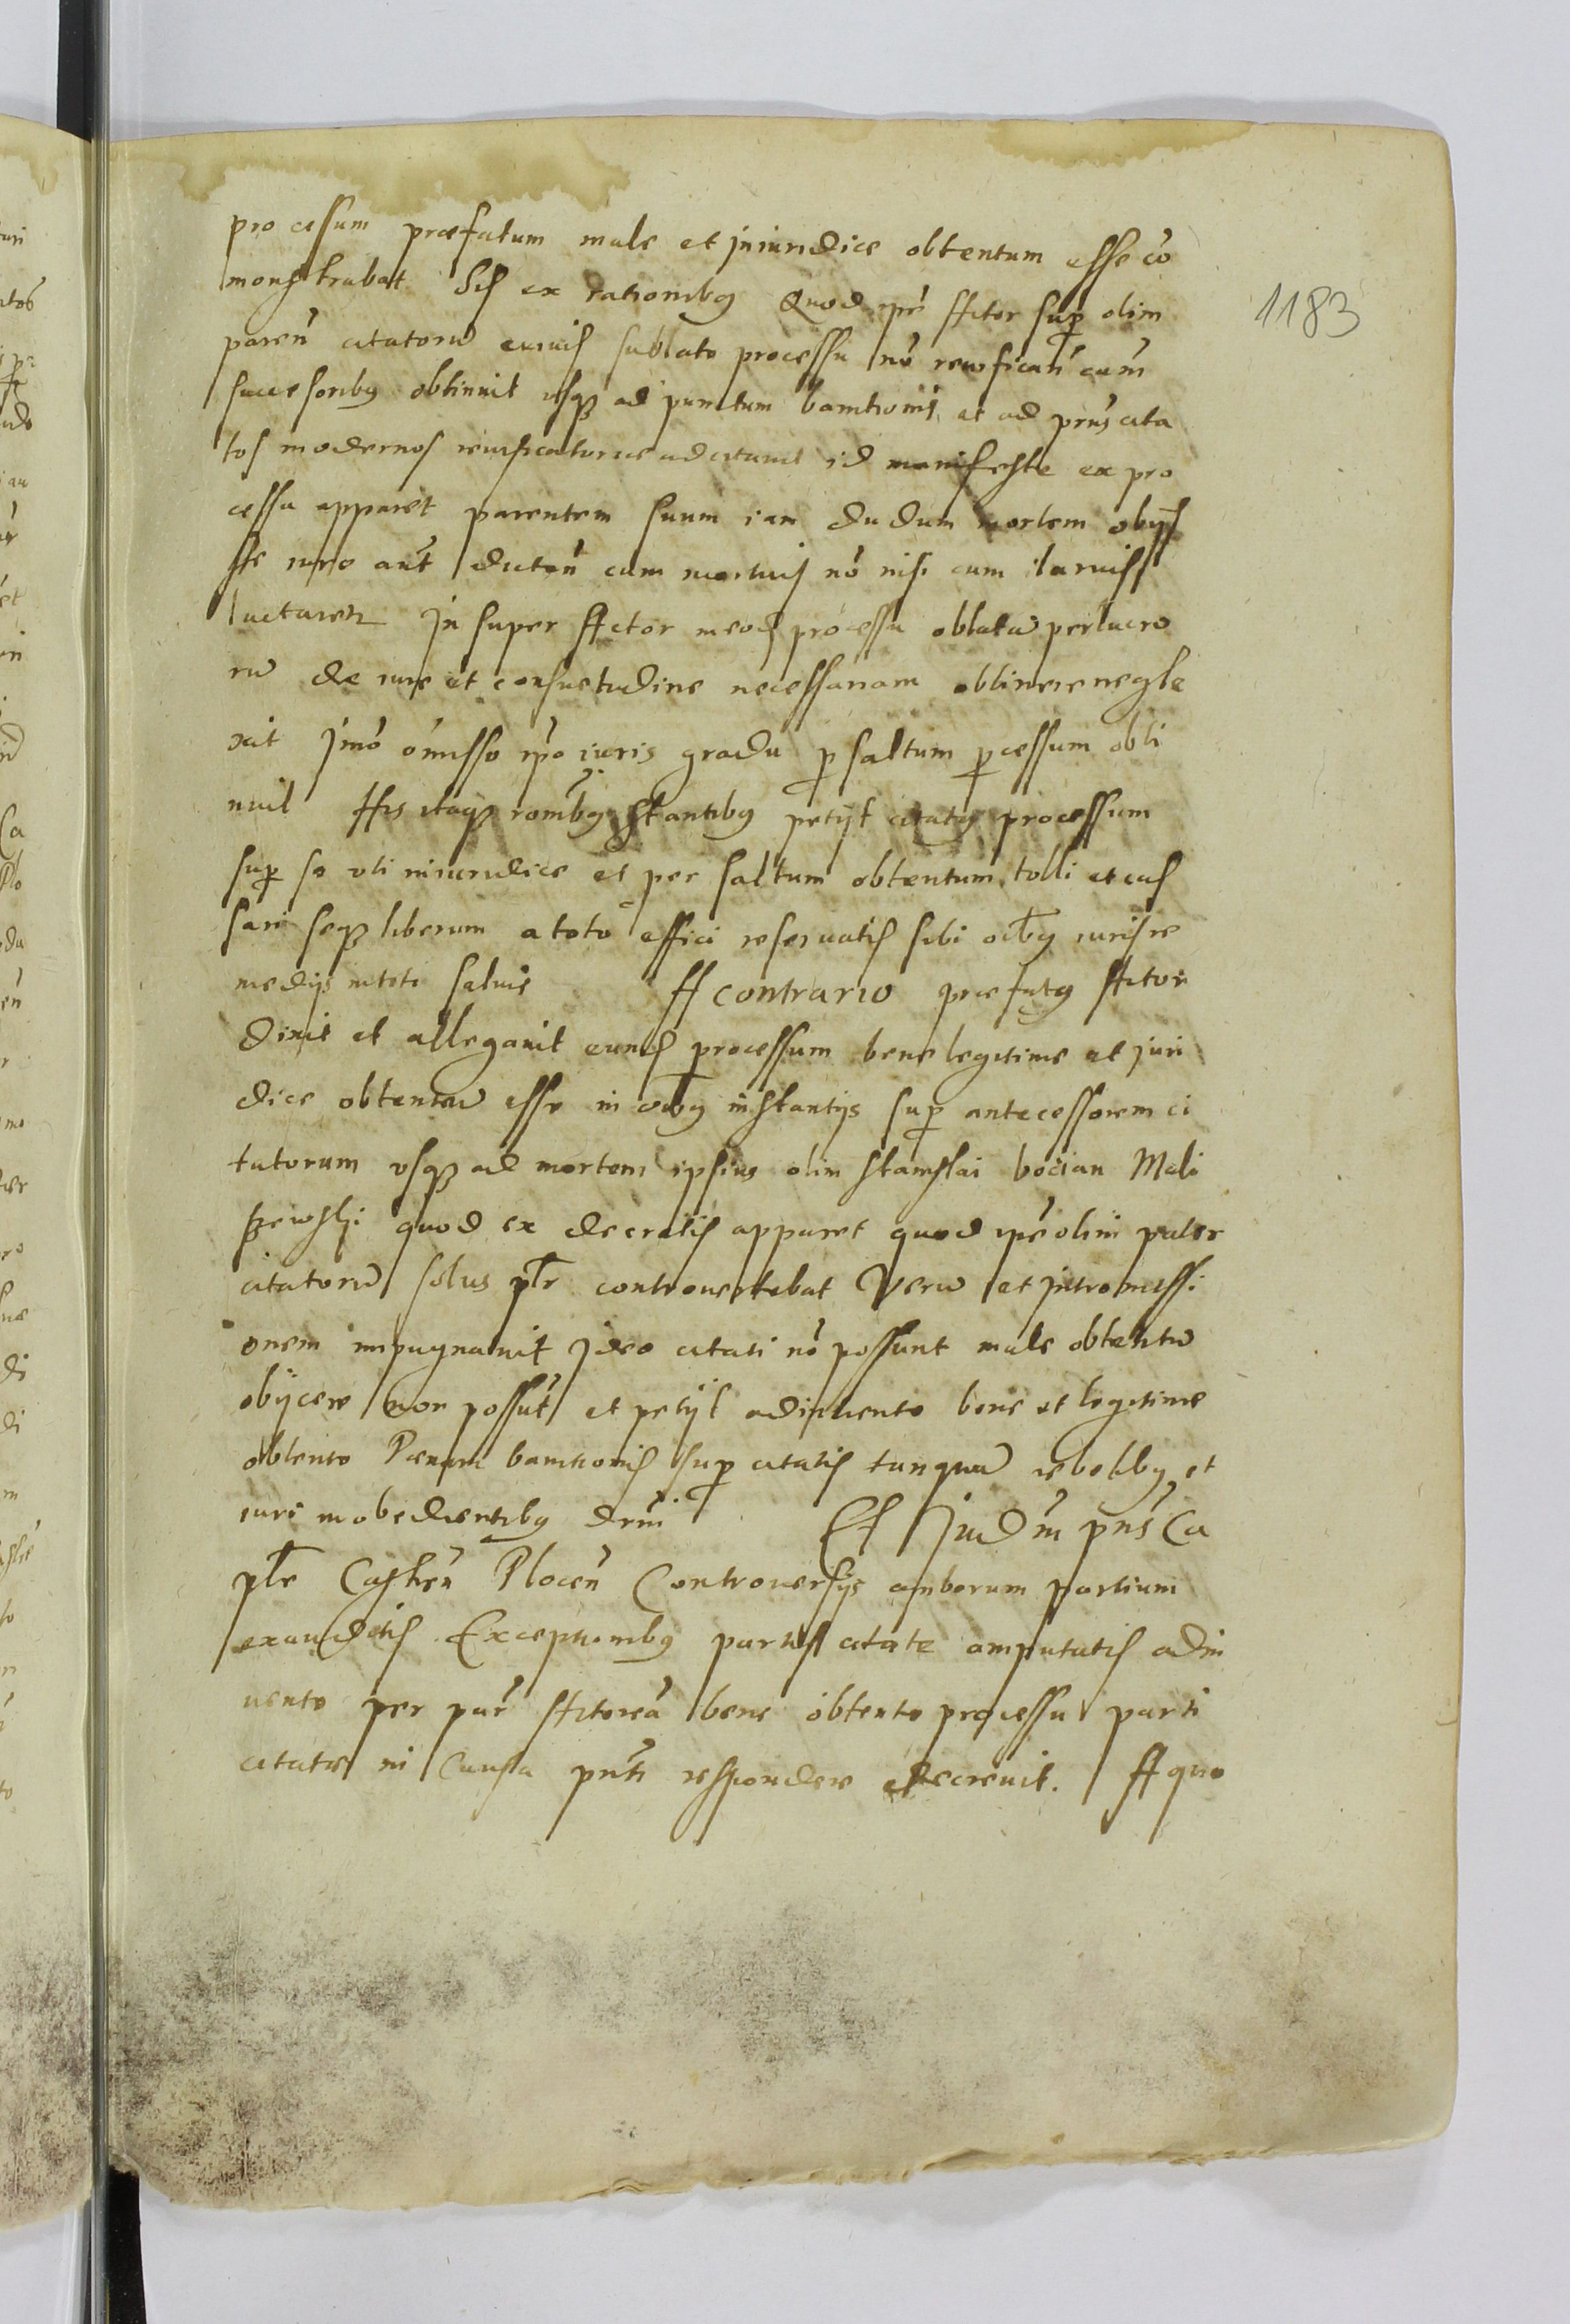 processum præfatum male et iniuridice obtentum esse co
monstrabat His ex rationibus Quod ipse Actor super olim
paren citatorum sublato processu non revifican eam
successoribus obtinuit usque ad punctum bannitionis et ad pns cita
tos modernos reuificatorie adcitauit id manifeste ex pro
cessu apparet parentem suum iam dudum mortem obijs
se aut cum mortuis nõ nisi cum laruis
luctaretur Insuper Actor processu oblatam perlucro
rũ de iure et consuetudine necessariam obtinere negle
xit Imo omisso ipso iuris gradu per saltum processum obti
nuit His itaque rationibus stantibus petijt citatus processum
super se uti iniuridice et per saltum obtentum tolli et cas
sari seque liberum a toto effici reseruatis sibi oibus iuris re
medijs in toto saluis A contrario præfatus Actor
dixit et allegauit eundem processum bene legitime et juri
dice obtentum esse in oibus instantijs super antecessorem ci
tatorum usque ad mortem ipsius olim Stanislai bocian Mali
szewski quod ex decretis apparet quod ipse olim pater
citatorum solus plr controuertebat Verum et intromissi
onem impugnauit Ideo citati nõ possunt male obtentum
obijcere non possut et petijt adinuento bene et legitime
obtento Pœnam bannitionis super citatis tanquam rebellibus et
iuri inobedientibus Et Iudm pns Ca
ple Castren Plocen Controuersijs amborum partium
exauditis Exceptionibus partis citatæ amputatis adin
uento per par Actoream bene obtento processu parti
citatæ in Causa pnti respondere decreuit. A quo
1183